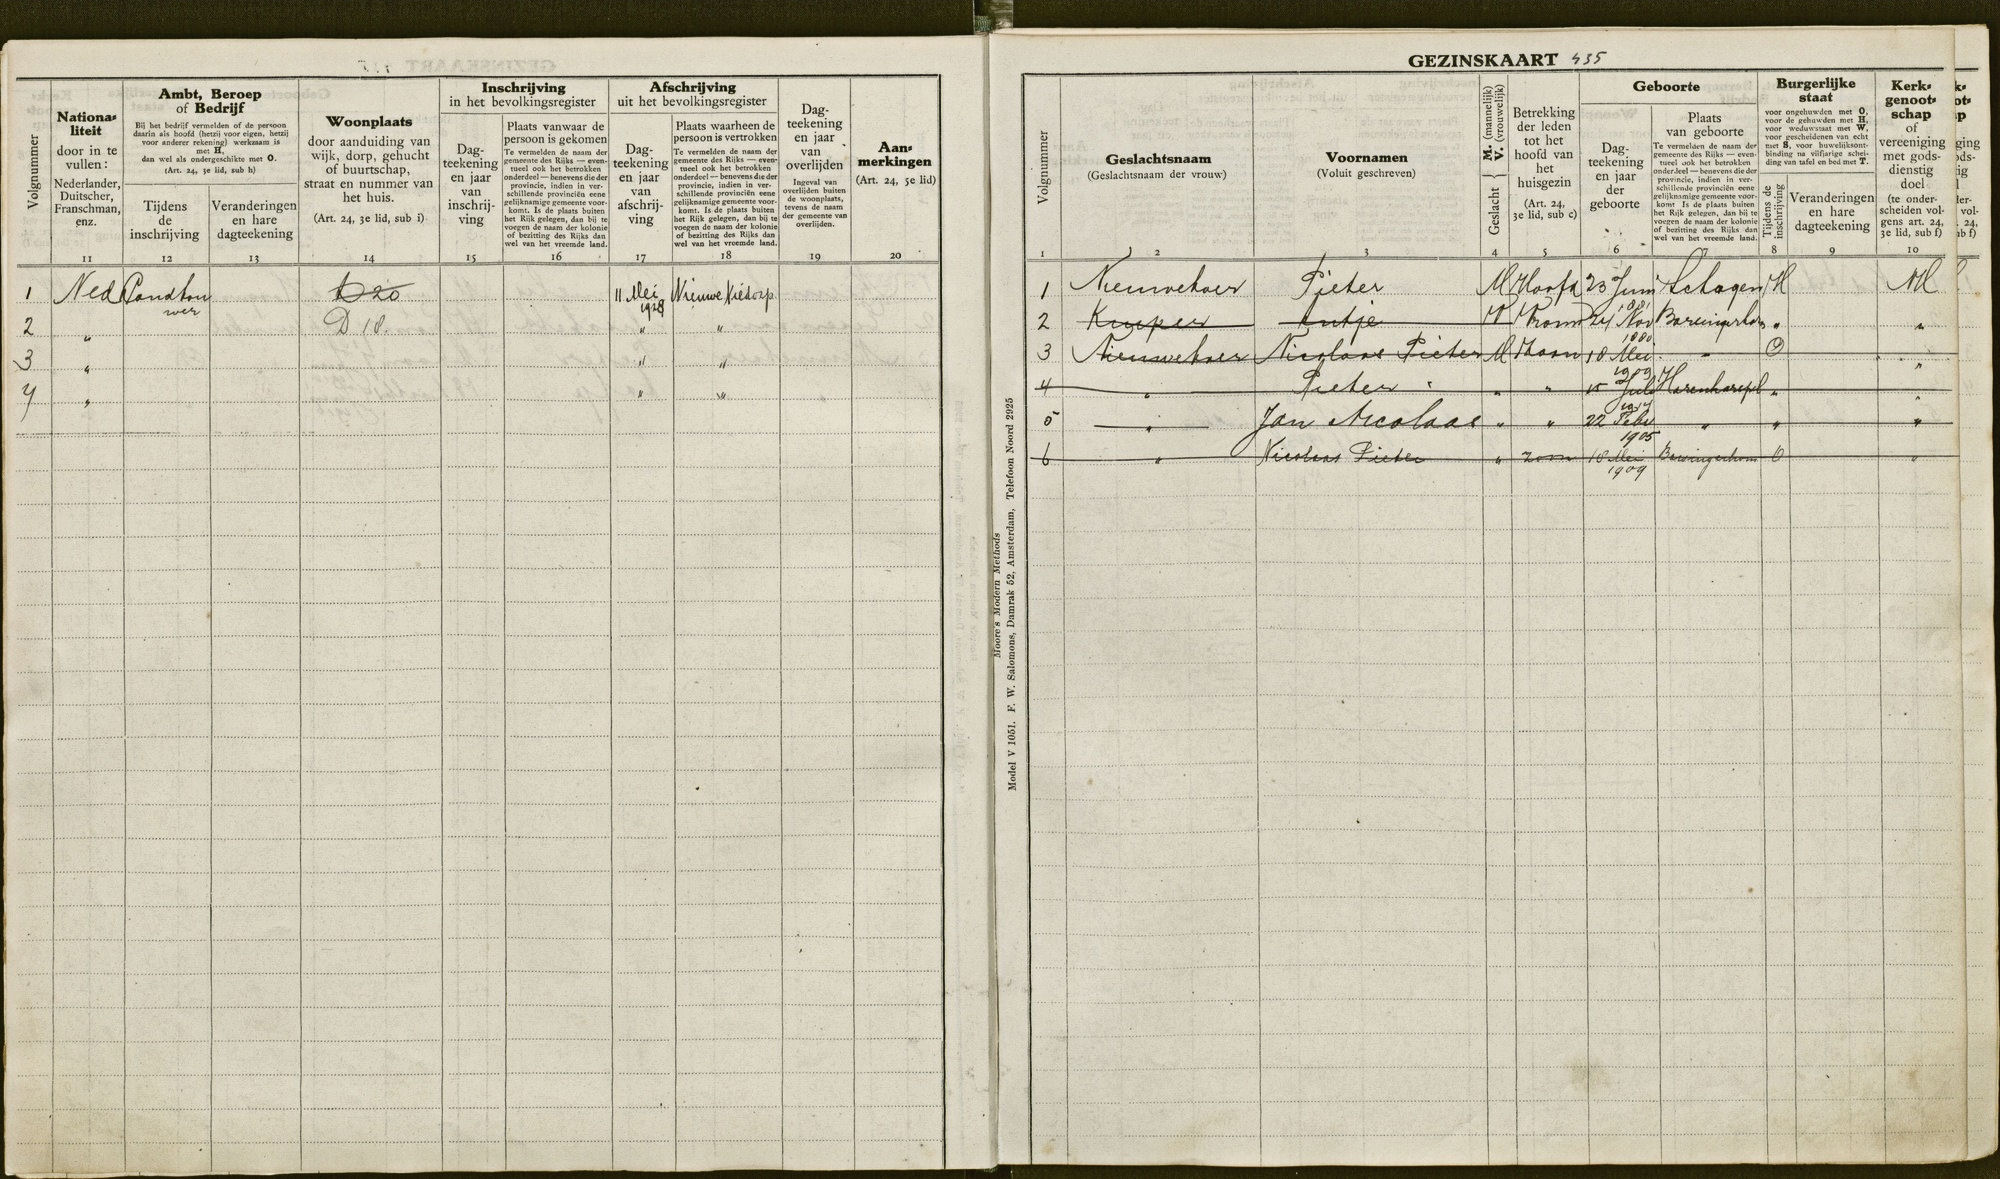 Volgnummer
Nationa-
liteit
door in te
vullen:
Nederlander,
Duitscher,
Franschman,
enz.
11
Ambt, Beroep
of Bedrijf
Bij het bedrijf vermelden of de persoon
daarin als hoofd (hetzij voor eigen, hetzij
voor anderer rekening) werkzaam is
met H,
dan wel als ondergeschikte met O.
(Art. 24, 3e lid, sub h)
Tijdens
de
inschrijving
12
Veranderingen
en hare
dagteekening
13
Woonplaats
door aanduiding van
wijk, dorp, gehucht
of buurtschap,
straat en nummer van
het huis.
(Art. 24, 3e lid, sub i)
14
Inschrijving
in het bevolkingsregister
Dag-
teekening
en jaar
van
inschrij-
ving
15
Plaats vanwaar de
persoon is gekomen
Te vermelden de naam der
gemeente des Rijks — even-
tueel ook het betrokken
onderdeel — benevens die der
provincie, indien in ver-
schillende provinciën eene
gelijknamige gemeente voor-
komt. Is de plaats buiten
het Rijk gelegen, dan bij te
voegen de naam der kolonie
of bezitting des Rijks dan
wel van het vreemde land.
16
Afschrijving
uit het bevolkingsregister
Dag-
teekening
en jaar
van
afschrij-
ving
17
Plaats waarheen de
persoon is vertrokken
Te vermelden de naam der
gemeente des Rijks — even-
tueel ook het betrokken
onderdeel — benevens die der
provincie, indien in ver-
schillende provinciën eene
gelijknamige gemeente voor-
komt. Is de plaats buiten
het Rijk gelegen, dan bij te
voegen de naam der kolonie
of bezitting des Rijks dan
wel van het vreemde land.
18
Dag-
teekening
en jaar
van
overlijden
Ingeval van
overlijden buiten
de woonplaats,
tevens de naam
der gemeente van
overlijden.
19
Aan-
merkingen
(Art. 24, 5e lid)
20
1 Ned D 20 11 Mei 1928 Nieuwe Niedorp
2 " D 18. " "
3 " " "
4 " " "
Moore's Modern Methods
Model V 1051. F. W. Salomons, Damrak 52, Amsterdam, Telefoon Noord 2925
GEZINSKAART 435
Volgnummer
1
Geslachtsnaam
(Geslachtsnaam der vrouw)
2
Voornamen
(Voluit geschreven)
3
Geslacht { M. (mannelijk) V. (vrouwelijk)
4
Betrekking
der leden
tot het
hoofd van
het
huisgezin
(Art. 24,
3e lid, sub c)
5
Geboorte
Dag-
teekening
en jaar
der
geboorte
6
Plaats
van geboorte
Te vermelden de naam der
gemeente des Rijks — even-
tueel ook het betrokken
onderdeel — benevens die der
provincie, indien in ver-
schillende provinciën eene
gelijknamige gemeente voor-
komt Is de plaats buiten
het Rijk gelegen, dan bij te
voegen de naam der kolonie
of bezitting des Rijks dan
wel van het vreemde land.
7
Burgerlijke
staat
voor ongehuwden met O,
voor de gehuwden met H,
voor weduwstaat met W,
voor gescheidenen van echt
met S, voor huwelijksont-
binding na vijfjarige schei-
ding van tafel en bed met T.
Tijdens de
inschrijving
8
Veranderingen
en hare
dagteekening
9
Kerk-
genoot-
schap
of
vereeniging
met gods-
dienstig
doel
(te onder-
scheiden vol-
gens art. 24,
3e lid, sub f)
10
1 Pieter M Hoofd 23 Juni Schagen H NH
2 Kuiper Antje V Vrouw 24 Nov "
3 Nicolaas Pieter M Zoon 18 Mei 1909 O "
4 " Pieter " " 15 Juli "
5 " Jan Nicolaas " " 22 Febr 1905 " " "
6 " Nicolaas Pieter " zoon 18 Mei 1909 O "